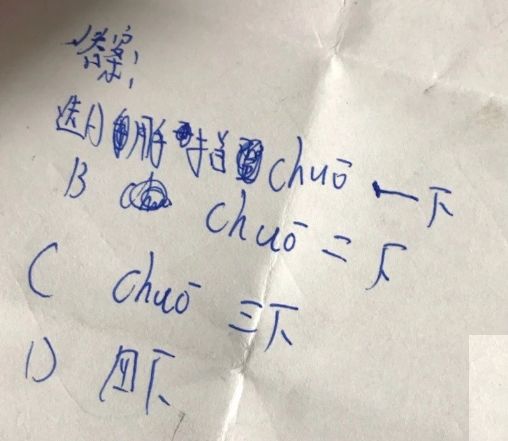 答案:
选A 用手指 chuō 一下
B chuō 二下
C chuō 三下
D 四下